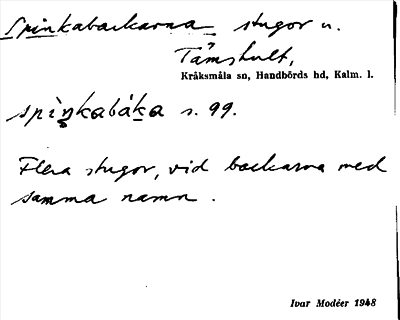 Spinkabackarna stugor u.
Tåmshult,
Kråksmåla sn, Handbörds hd, Kalm. l.
spìŋkabáka s. 99.
Flera stugor, vid backarna med
samma namn.
Ivar Modéer 1948